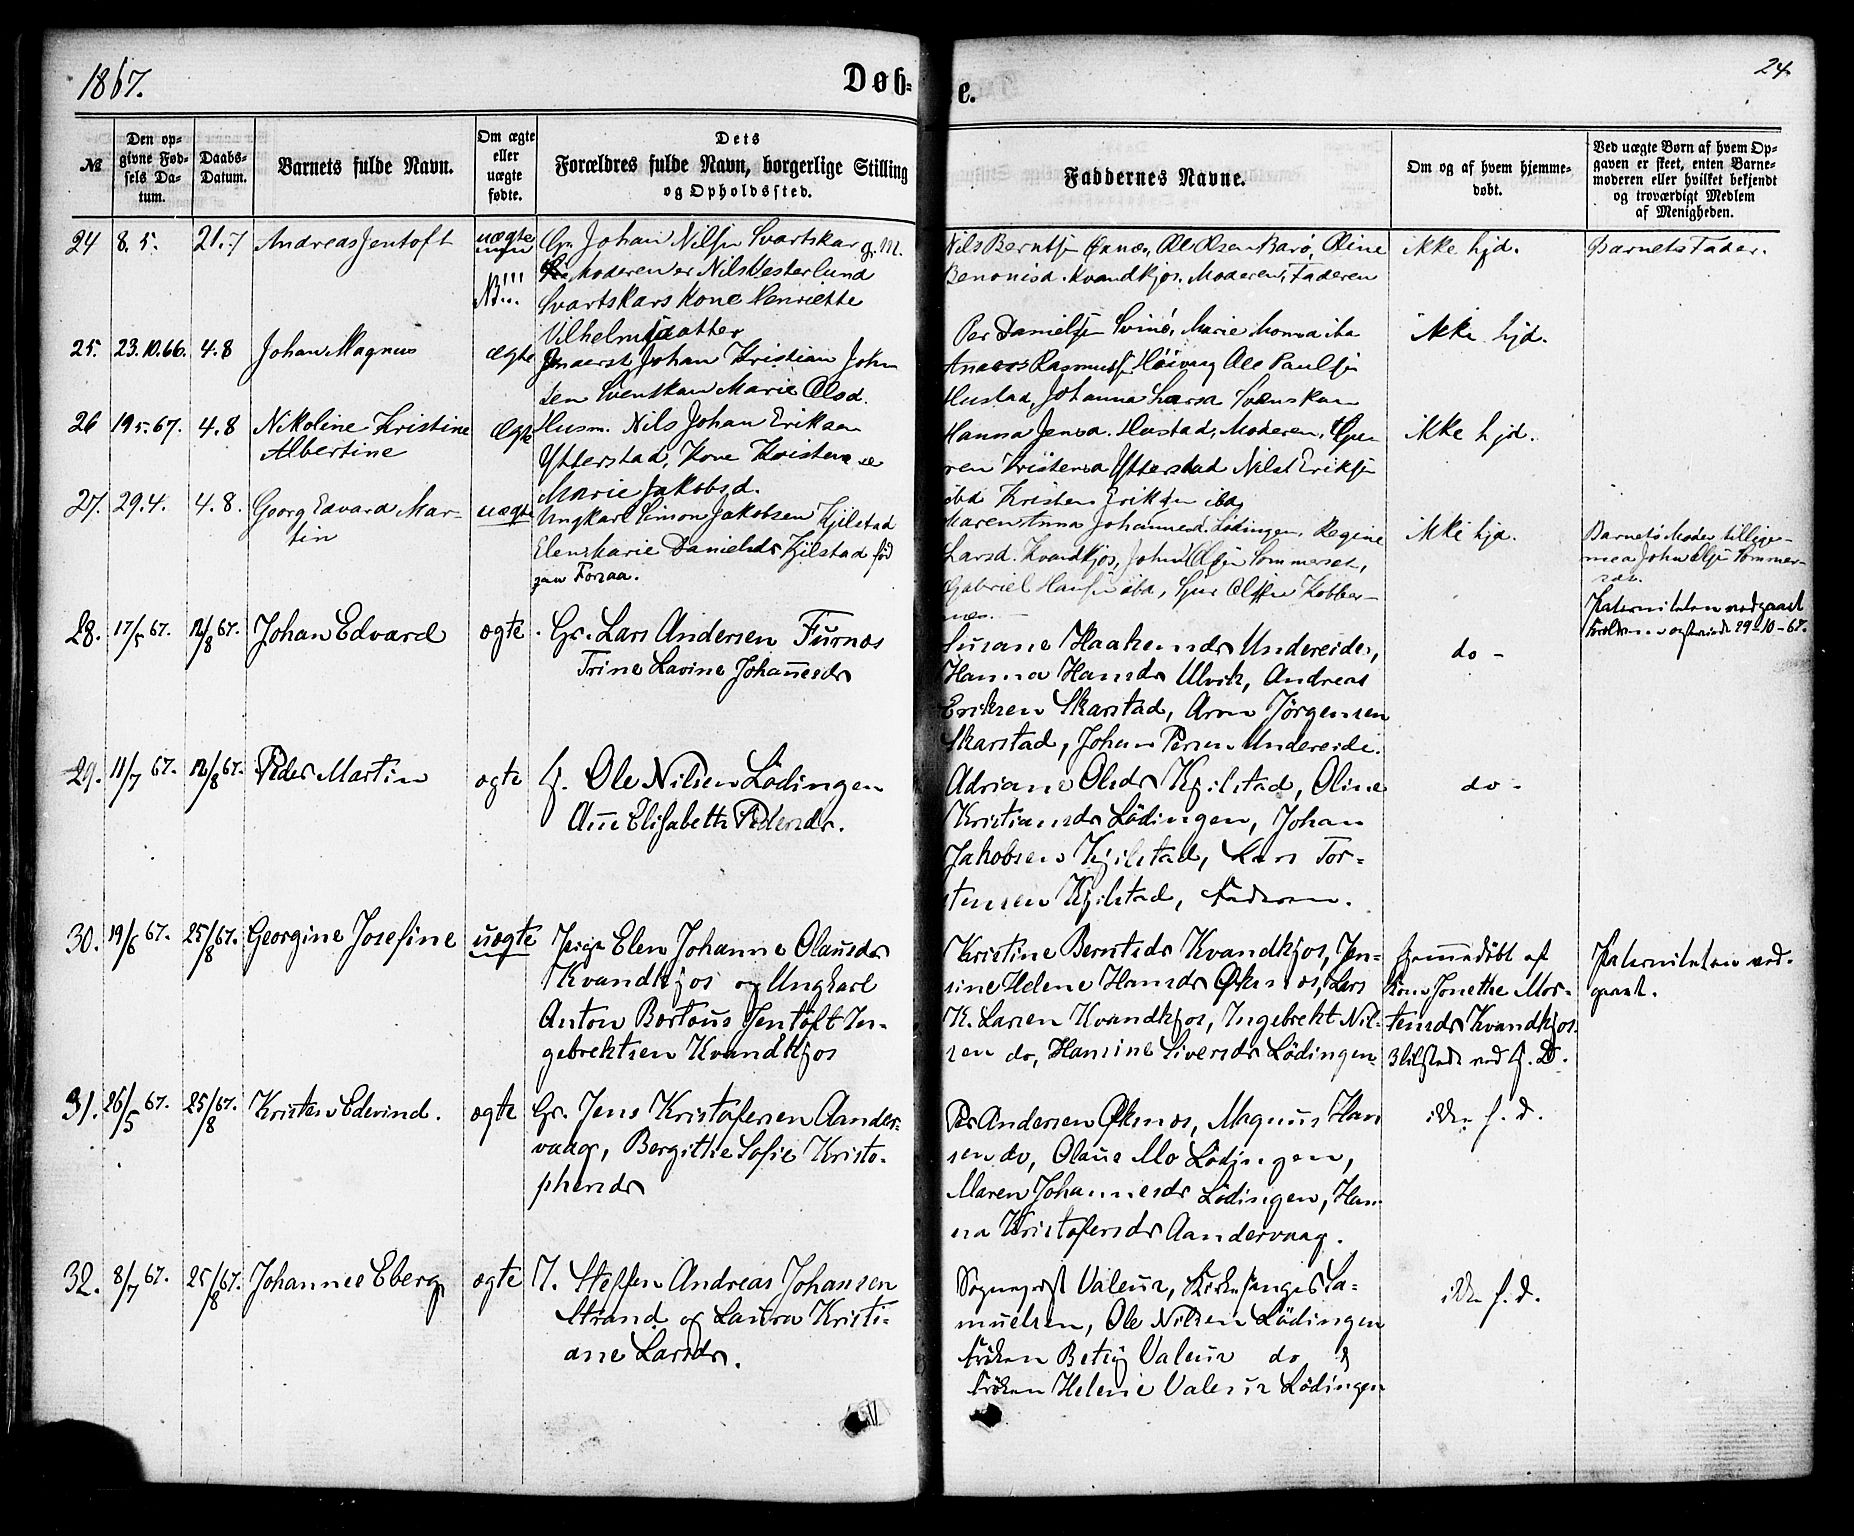 1867.
Døb-
e.
24
№
Den op-
givne Fød-
sels Da-
tum.
Daabs-
Datum.
Barnets fulde Navn.
Om ægte
eller
uægte
fødte.
Dets
Forældres fulde Navn, borgerlige Stilling
og Opholdssted.
Faddernes Navne.
Om og af hvem hjemme-
døbt.
Ved uægte Børn af hvem Op-
gaven er skeet, enten Barne-
moderen eller hvilket bekjendt
og troværdigt Medlem
af Menigheden.
24 8. 5. 21.7 Andreas Jentoft uægte
NB!!!
Gr. Johan Nilsen Svartskar g. M.
Moderen er Nils Vesterlund
Svartskars Kone Henriette
Vilhelmsdatter
Nils Berntsen Øxnæs, Ole Olsen Barø, Oline
Benonisd. Kvandkjos. Moderen, Faderen
ikke hjd.
Barnets Fader.
25. 23.10.66. 4.8 Johan Magnus ægte
Johan Kristian John
sen Svenskan Marie Olsd.
Per Danielsen Svinø, Marie
Anders Rasmussen Høivaag Ole Paulsen
Hustad, Johanna Larsd Svenskan
ikke hjd.
26 19 5. 67. 4.8 Nikoline Kristine
Albertine
Ægte
Husm. Nils Johan Eriksen
Ytterstad, Kone
Marie Jakobsd.
Hanna Jensd. Hustad, Moderen,
Ytterstad Nils Eriksen
ibd Kristen Eriksen ibd
ikke hjd.
27. 29.4. 4.8. Georg Edvard Mar-
tin
uægte
Ungkarl Simon Jakobsen Kjilstad
Elen Marie Danielsdr Kjilstad før
paa Foraa.
Maren Anna Johannesd. Lødingen, Regine
Larsd. Kvandkjos, Johan Olsen Sommerset,
Gabriel Hansen ibd, Sjur Olsen Kobber-
nes.
ikke hjd.
Barnets Moder tillige-
med John Olsen Sommer-
set.
Paterniteten vedgaaet
29-10-67.
28. 17/5 67. 12/8 67. Johan Edvard ægte
Gr. Lars Andersen Furnes
Trine Lavine Johannesdr
Susane Haakensdr Undereidet,
Hanna Hansdr Ulvik, Andreas
Eriksen Skarstad, Aron Jørgensen
Skarstad, Johan Persen Undereide.
do -
29. 11/7 67. 12/8 67. Peder Martin ægte
G. Ole Nilsen Lödingen
Ane Elisabeth Pedersdr.
Adriane Olsdr Kjilstad, Oline
Kristiansdr Lödingen, Johan
Jakobsen Kjilstad, Lars Tor-
stensen Kjilstad, Faderen.
do -
30. 19/6 67. 25/8 67. Georgine Josefine uægte
Pige Elen Johanne Olausdr
Kvandkjos og Ungkarl
Anton Bertëus Jentoft In-
gebrektsen Kvandkjos
Kristine Berntsdr Kvandkjos, Jen-
sine Helene Hansdr Øksnes, Lars
K. Larsen Kvandkjos, Ingebrekt Nil-
sen do, Hansine Siversdr Lödingen
Hjemmedöbt af
Kone Jonette Mor-
tensdr Kvandkjos
Tilstede ved H. D.
Paterniteten ved-
gaaet.
31. 26/5 67. 25/8 67. Kristen Edevind. ægte
Gr. Jens Kristofersen Aander-
vaag, Bergithe Sofie Kristo-
phersdr
Per Andersen Øksnes, Magnus Han
sen do, Olaus Mo Lödingen,
Maren Johannesdr Lödingen, Han
na Kristofersdr Aandervaag.
ikke h. d.
32. 8/7 67. 25/8 67. Johannes Eberg ægte
I. Steffen Andreas Johansen
Strand og Laura Kristi-
ane Larsdr.
Sogneprest Valeur, Kirkesanger Sa-
muelsen, Ole Nilsen Lödingen
Fröken Betsy Valeur do &
Fröken Helene Valeur Lödingen
ikke h. d.